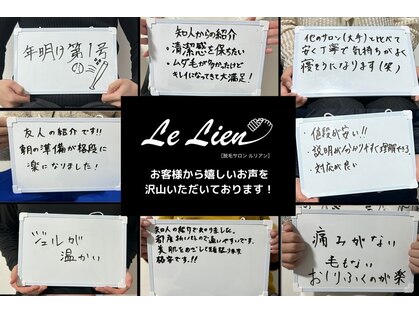 年明け第1号
知人からの紹介
・清潔感を保ちたい
・ムダ毛が多かったけど
キレイになってきて大満足!
他のサロン(大手)と比べて
安く丁寧で気持ちがよく
寝そうになります(笑)
友人の紹介です!!
朝の準備が格段に
楽になりました!
Le Lien
[脱毛サロン ルリアン]
お客様から嬉しいお声を
沢山いただいております!
・値段が安い!!
・説明が分かりやすく理解できる
・対応が良い
ジェルが
温かい
知人の紹介で知りました。
都度払いなので通いやすいです。
美肌をめざして頑張ります
格安です!!
痛みがない
毛もない
おしりふくのが楽